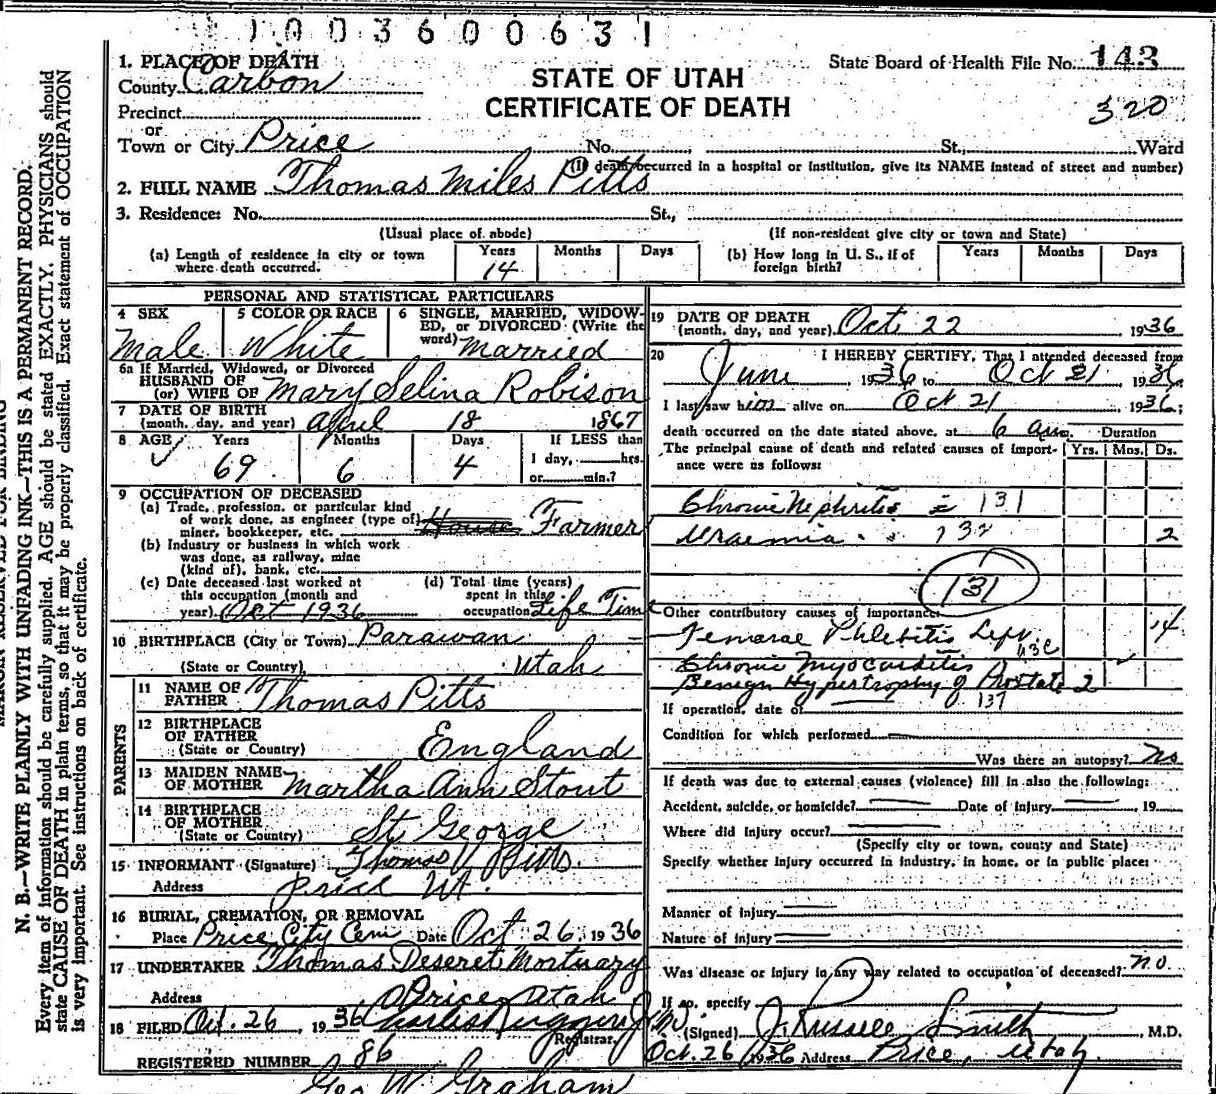 1003600631
1. PLACE OF DEATH
County Carbon
STATE OF UTAH
CERTIFICATE OF DEATH
State Board of Health File No. 143
320
Precinct
or
Town or City Price No. St., Ward
(If death occurred in a hospital or institution, give its NAME instead of street and number)
2. FULL NAME Thomas Miles Pitts
3. Residence: No. St.,
(Usual place of abode) (If non-resident give city or town and State)
(a) Length of residence in city or town where death occurred. Years 14 Months Days
(b) How long in U. S., if of foreign birth? Years Months Days
PERSONAL AND STATISTICAL PARTICULARS
4 SEX Male
5 COLOR OR RACE White
6 SINGLE, MARRIED, WIDOWED, or DIVORCED (Write the word) Married
6a If Married, Widowed, or Divorced
HUSBAND OF
(or) WIFE OF Mary Selina Robison
7 DATE OF BIRTH
(month, day, and year) April 18 1867
8 AGE Years 69 Months 6 Days 4
If LESS than
1 day, hrs.
or min.?
9 OCCUPATION OF DECEASED
(a) Trade, profession, or particular kind
of work done, as engineer (type of)
miner, bookkeeper, etc. House Farmer
(b) Industry or business in which work
was done, as railway, mine
(kind of), bank, etc.
(c) Date deceased last worked at
this occupation (month and
year) Oct 1936
(d) Total time (years)
spent in this
occupation Life Time
10 BIRTHPLACE (City or Town) Parawan
(State or Country) Utah
PARENTS
11 NAME OF
FATHER Thomas Pitts
12 BIRTHPLACE
OF FATHER
(State or Country) England
13 MAIDEN NAME
OF MOTHER Martha Ann Stout
14 BIRTHPLACE
OF MOTHER
(State or Country) St George
15 INFORMANT (Signature) Thomas V Pitts.
Address Price Ut.
16 BURIAL, CREMATION, OR REMOVAL
Place Price City Cem Date Oct 26 1936
17 UNDERTAKER Thomas Deseret Mortuary
Address Price, Utah
18 FILED Oct. 26, 1936
Registrar.
REGISTERED NUMBER 86
Geo W Graham
19 DATE OF DEATH
(month, day, and year) Oct. 22 1936
20 I HEREBY CERTIFY, That I attended deceased from
June, 1936 to Oct 21 1936
I last saw him alive on Oct 21, 1936;
death occurred on the date stated above, at 6 am. Duration
The principal cause of death and related causes of importance were as follows: Yrs. Mos. Ds.
Chronic Nephritis = 131
Uraemia 132 2
131
Other contributory causes of importance:
Femoral Phlebitis Left. 14
Chronic Myocarditis
Benign Hypertrophy of Prostate 2
137
If operation, date of
Condition for which performed
Was there an autopsy? No
If death was due to external causes (violence) fill in also the following:
Accident, suicide, or homicide? Date of injury , 19
Where did injury occur?
(Specify city or town, county and State)
Specify whether injury occurred in industry, in home, or in public place:
Manner of injury
Nature of injury
Was disease or injury in any way related to occupation of deceased? no
If so, specify
(Signed) J. Russell Smith M.D.
Oct. 26 1936 Address Price, Utah.
N. B.—WRITE PLAINLY WITH UNFADING INK—THIS IS A PERMANENT RECORD.
Every item of information should be carefully supplied. AGE should be stated EXACTLY. PHYSICIANS should
state CAUSE OF DEATH in plain terms, so that it may be properly classified. Exact statement of OCCUPATION
is very important. See instructions on back of certificate.